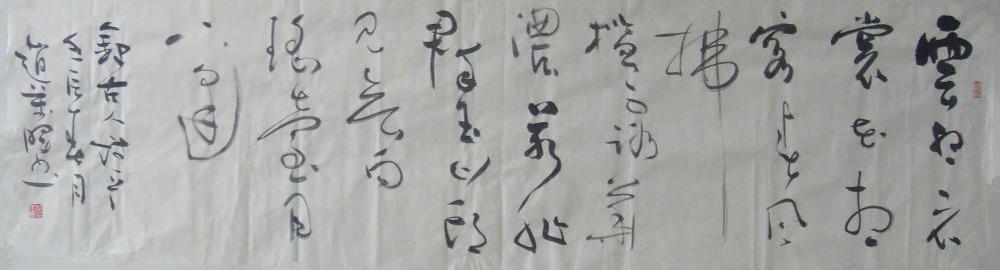 雲想衣
裳花想
容春風
拂
檻露華
濃若非
群玉山頭
見會向
瑤臺月
下逢
錄古人
壬辰年春月